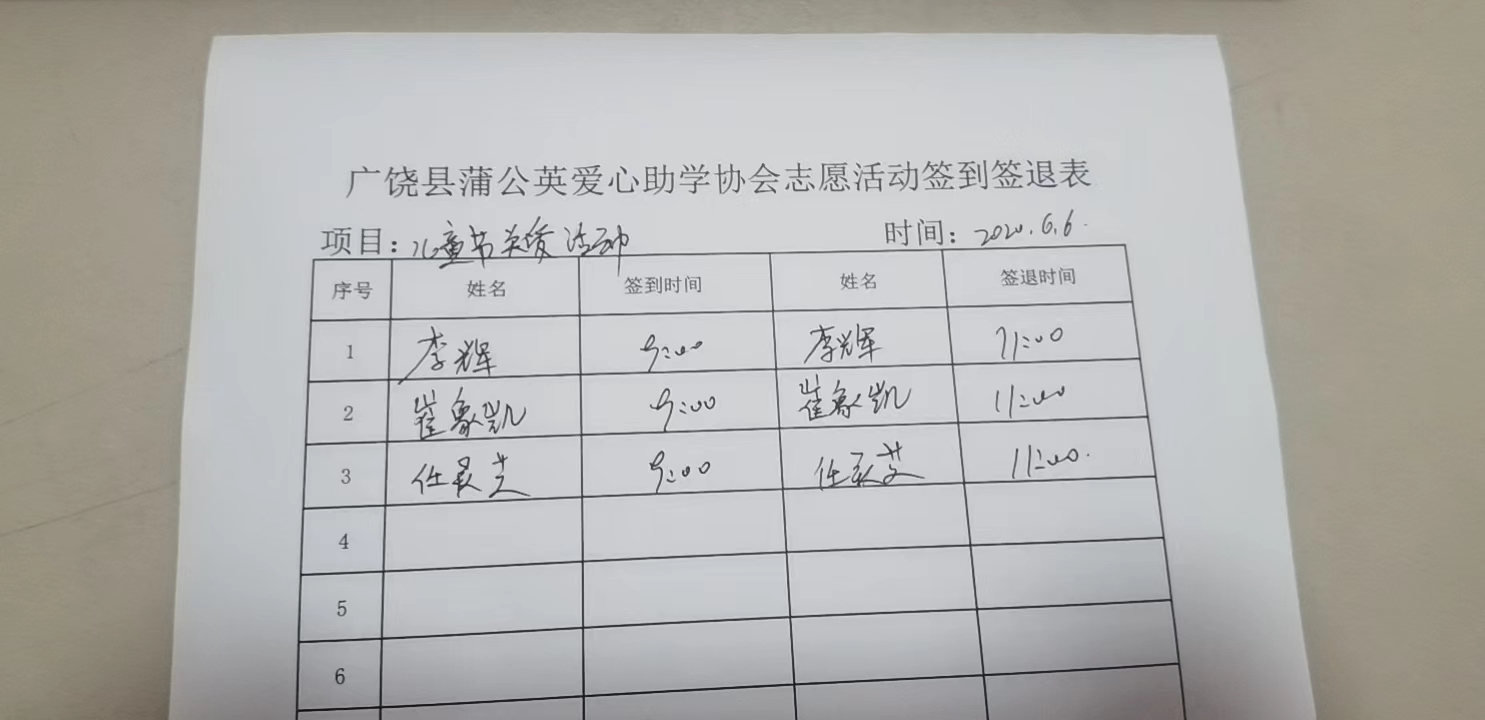 广饶县蒲公英爱心助学协会志愿活动签到签退表
项目：儿童节关爱活动 时间：2020.6.6.
序号 姓名 签到时间 姓名 签退时间
1 李辉 9:00 李辉 11:00
2 崔象凯 9:00 崔象凯 11:00
3 任 9:00 任 11:00.
4
5
6